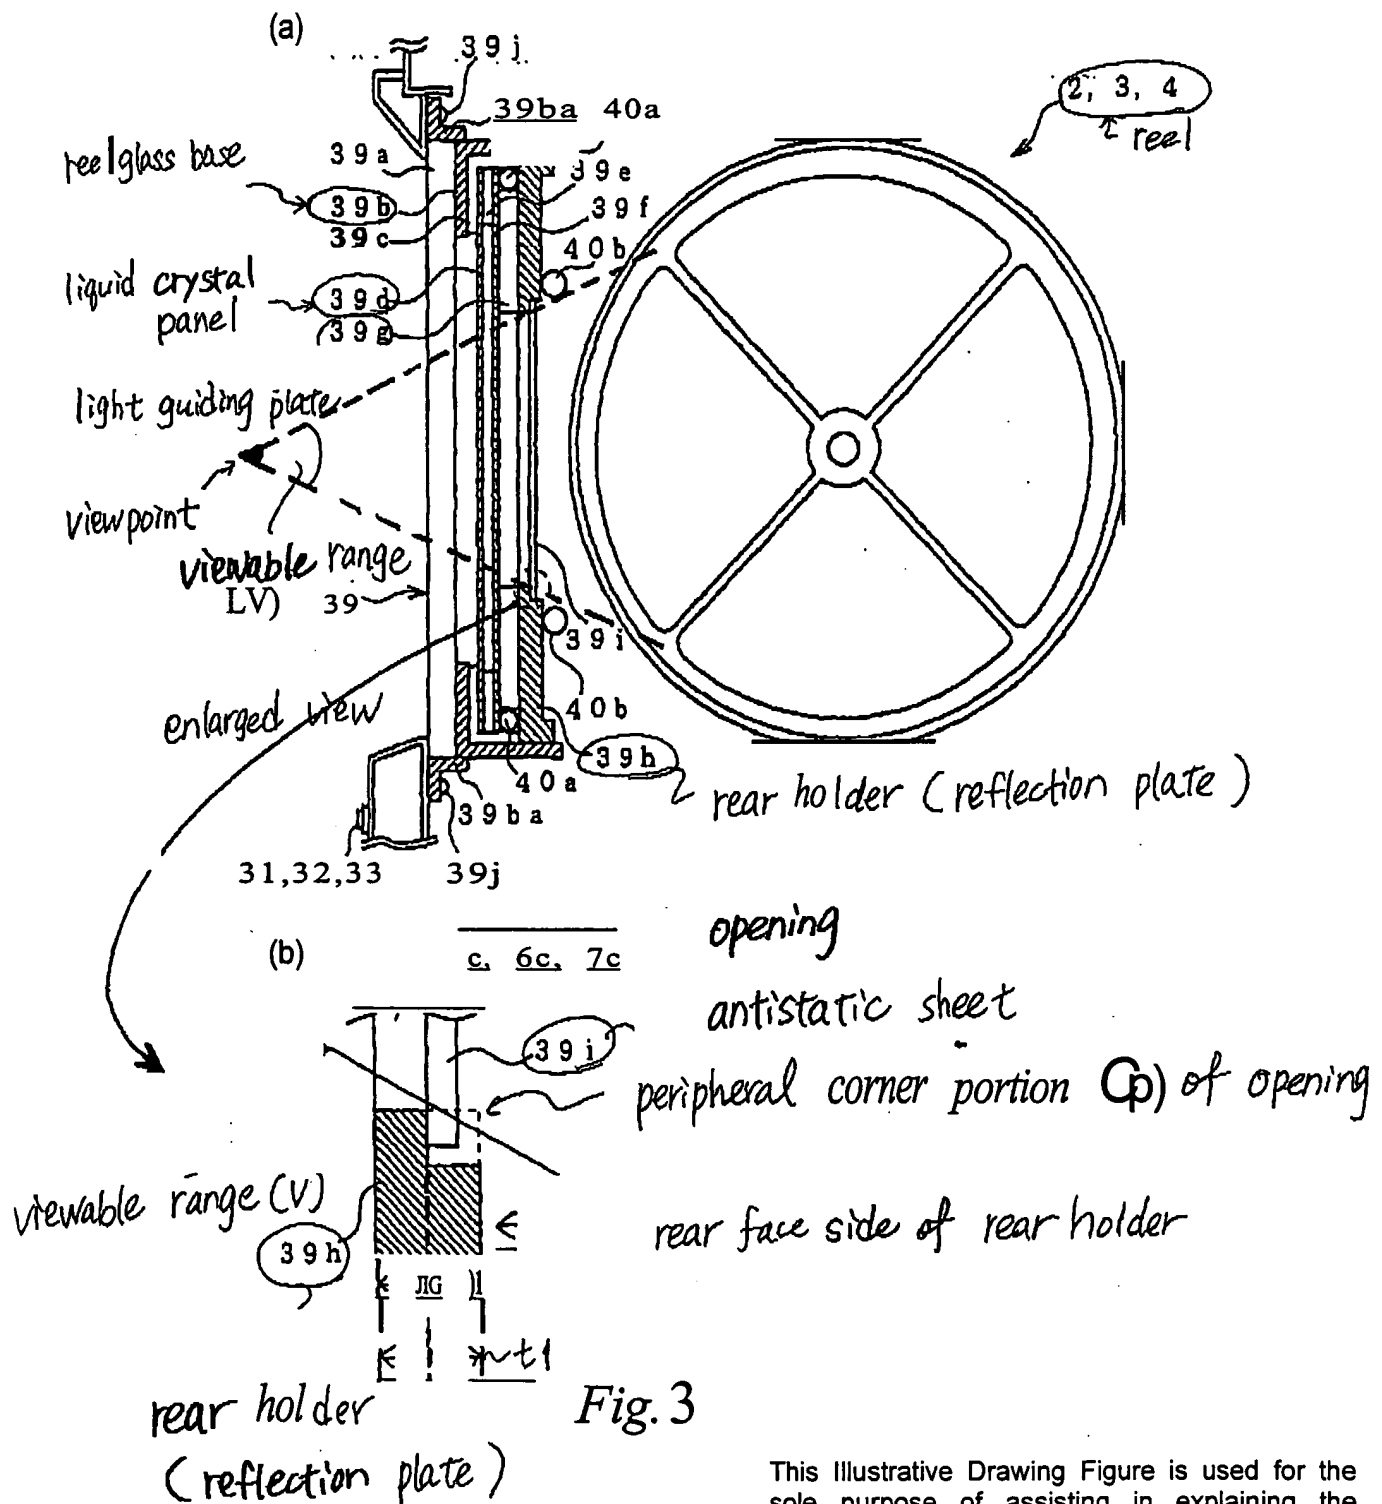 (a)
39j
2, 3, 4
reel
39ba 40a
reel glass base
39a
39e
39b
39f
39c
40b
liquid crystal
panel
39d
39g
light guiding plate
viewpoint
viewable range
LV) 39
39i
enlarged view
40b
39h
40a
rear holder (reflection plate)
39ba
31,32,33
39j
opening
(b)
c, 6c, 7c
antistatic sheet
39i
peripheral corner portion Cp) of opening
viewable range (V)
rear face side of rear holder
39h
t1
rear holder
(reflection plate)
Fig. 3
This Illustrative Drawing Figure is used for the
sole purpose of assisting in explaining the